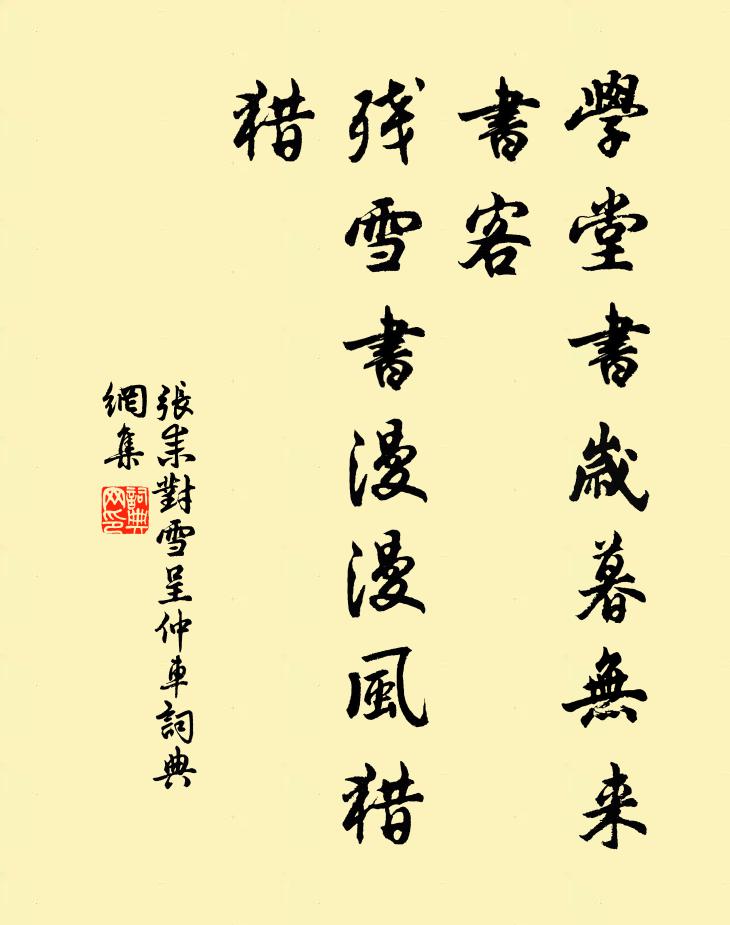 學堂書歲暮無来
書客
残雪書漫漫風猎
猎
張耒對雪呈仲車詞典
網集
詞典
网印